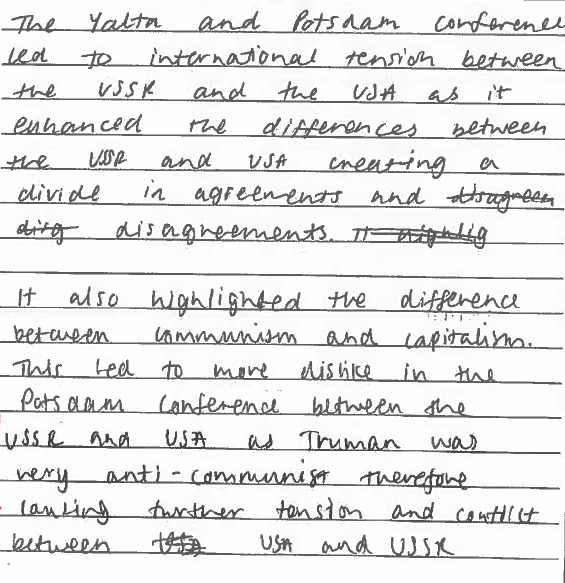 The Yalta and Potsdam conference
led to international tension between
the USSR and the USA as it
enhanced the differences between
the USSR and USA creating a
divide in agreements and disagreen
disg disagreements. It highlig
It also highlighted the difference
between communism and capitalism.
This led to more dislike in the
Potsdam Conference between the
USSR and USA as Truman was
very anti-communist therefore
causing further tension and conflict
between USA and USSR